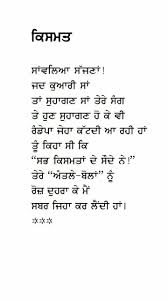 ਕਿਸਮਤ
ਸਾਂਵਲਿਆ ਸੱਜਣਾਂ!
ਜਦ ਕੁਆਰੀ ਸਾਂ
ਤਾਂ ਸੁਹਾਗਣ ਸਾਂ ਤੇਰੇ ਸੰਗ
ਤੇ ਹੁਣ ਸੁਹਾਗਣ ਹੋ ਕੇ ਵੀ
ਰੰਡੇਪਾ ਜੇਹਾ ਕੱਟਦੀ ਆ ਰਹੀ ਹਾਂ
ਤੂੰ ਕਿਹਾ ਸੀ ਕਿ
“ਸਭ ਕਿਸਮਤਾਂ ਦੇ ਸੌਦੇ ਨੇ!”
ਤੇਰੇ “ਅੰਤਲੇ-ਬੋਲਾਂ” ਨੂੰ
ਰੋਜ਼ ਦੁਹਰਾ ਕੇ ਮੈਂ
ਸਬਰ ਜਿਹਾ ਕਰ ਲੈਂਦੀ ਹਾਂ।
***